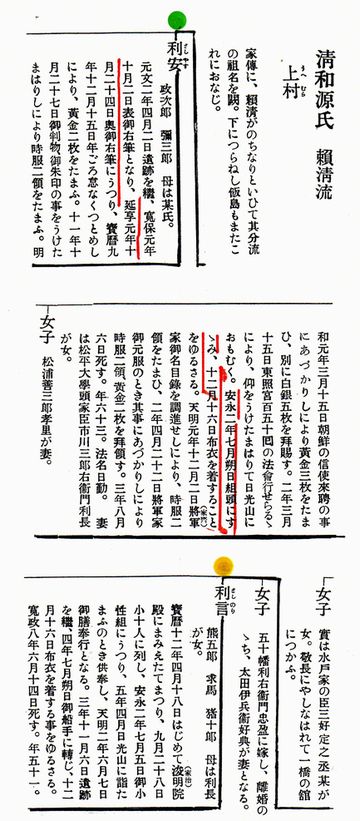 清和源氏 頼清流
上村
うへむら
家傳に、頼清がのちなりといひて其分流
の祖名を闕。下につらねし飯島もまたこ
れにおなじ。
利安
としやす
政次郎 彌三郎 母は某氏。
元文二年四月二日遺跡を繼、寛保元年
十月二日表御右筆となり、延享元年十
月二十四日奥御右筆にうつり、寶暦九
年十二月十五日年ごろ怠なくつとめし
により、黄金二枚をたまふ。十一年十
月二十七日御判物御朱印の事をうけた
まはりしにより時服二領をたまふ。明
和元年三月十五日朝鮮の信使來聘の事
にあづかりしにより黄金三枚をたま
ひ、別に白銀五枚を拜賜す。二年三月
十五日東照宮百五十囘の法會行せらるゝ
により、仰をうけたまはりて日光山に
おもむく。安永二年七月朔日組頭にす
ゝみ、十二月十六日布衣を着すること
をゆるさる。天明元年十二月二日將軍
(家治)
家御名目錄を調進せしにより、時服二
領をたまひ、二年四月二十二日將軍家
御元服のとき其事にあづかりしにより
時服二領、黄金二枚を拜領す。三年八月
六日死す。年六十三。法名日勤。妻
は松平大學頭家臣市川三郎右衞門利長
が女。
女子 松浦善三郎孝里が妻。
女子 實は水戸家の臣三好定之丞某が
女。敬長にやしなはれて一橋の舘
につかふ。
女子 五十幡利右衞門忠盈に嫁し、離婚の
のち、太田伊兵衞好典が妻となる。
利言
としのり
熊五郎 求馬 猪十郎 母は利長
が女。
寶暦十二年四月十八日はじめて浚明院
(家治)
殿にまみえたてまつり、九月二十八日
小十人に列し、安永二年七月五日御小
性組にうつり、五年四月日光山に詣た
まふのとき供奉し、天明二年六月七日
御膳奉行となる。三年十一月六日遺跡
を繼、四年七月朔日御船手に轉じ、十二
月十六日布衣を着する事をゆるさる。
寛政八年六月十四日死す。年五十一。